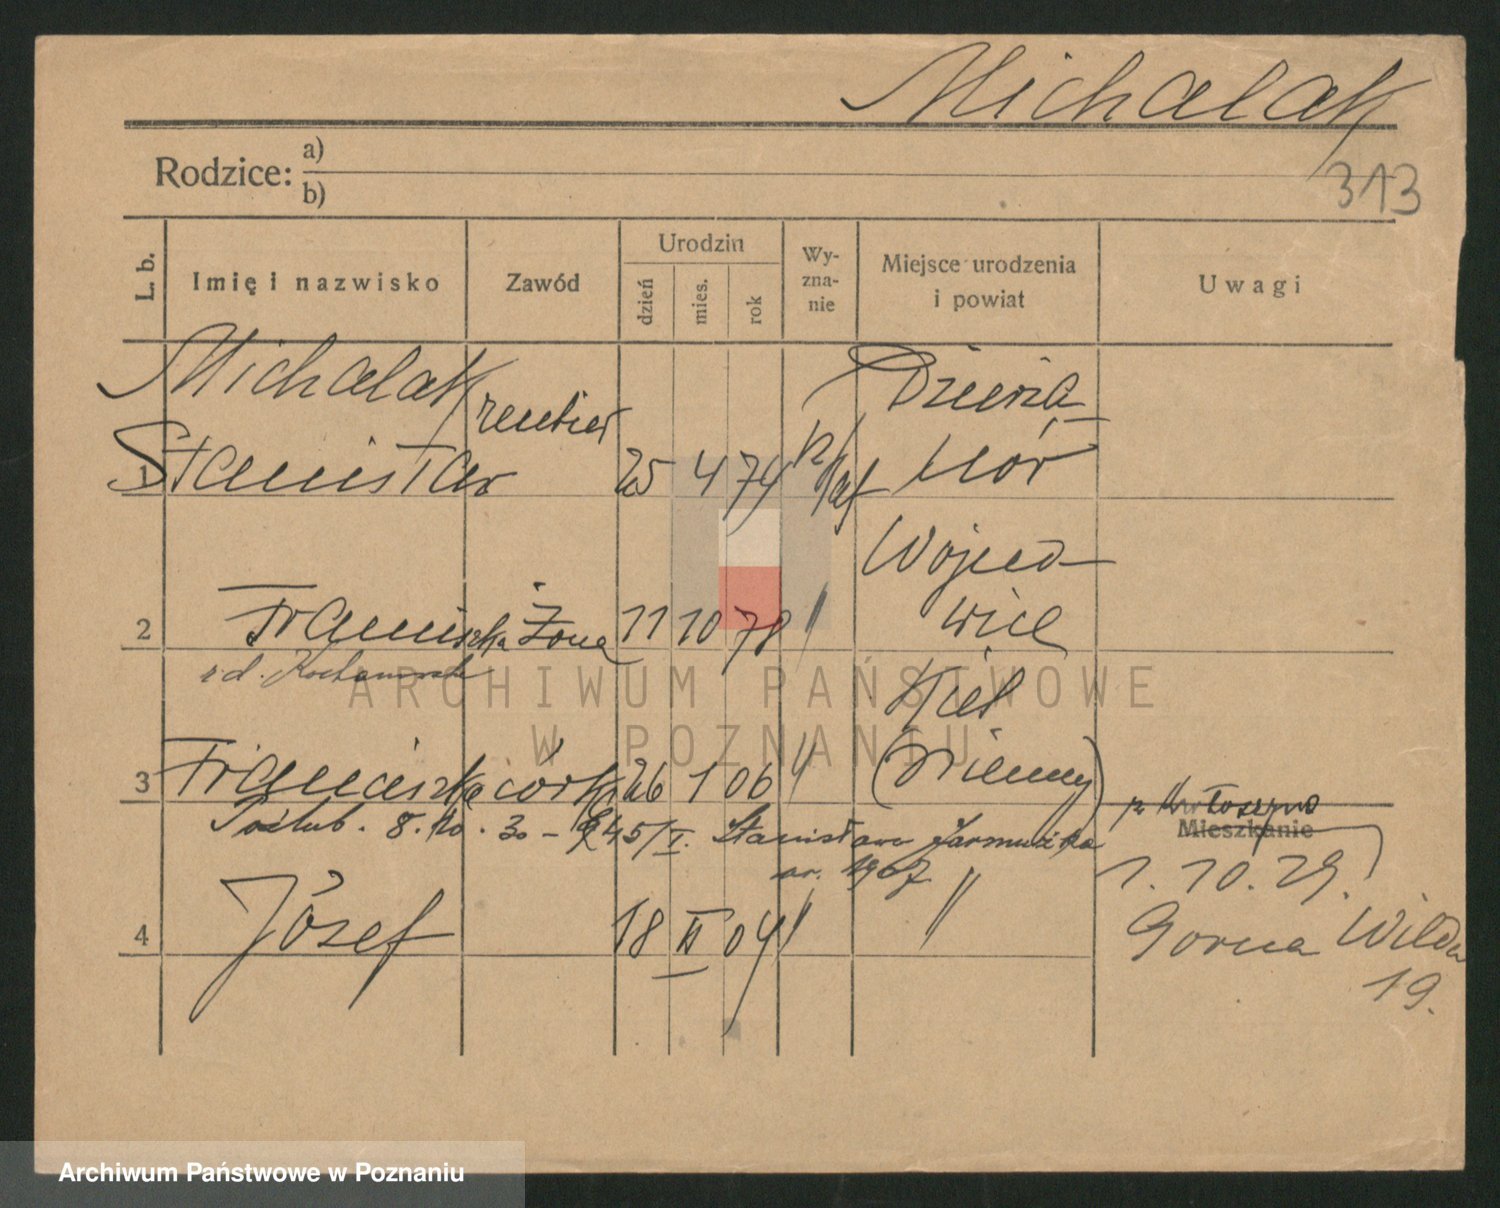 Michalak
313
Rodzice: a)
b)
L. b.
Imię i nazwisko
Zawód
Urodzin
dzień
mies.
rok
Wy-
zna-
nie
Miejsce urodzenia
i powiat
Uwagi
Michalak
rentier
Dziewia
1 Stanisław 25 4 74 rz/kat mór
Wojcie
2 Franciszka żona 11 10 78 " wice
rd.
Kiel
3 Franciszka córka 26 1 06 " (Niemcy)
Poślub. 8. 10. 30 - 645/I. Stanisława Jarmużka
ur. 1907
4 Józef 18 II 04 " "
z Krotoszyna
Mieszkanie
1. 10. 29.
Gorna Wilda
19.
ARCHIWUM PAŃSTWOWE
W POZNANIU
Archiwum Państwowe w Poznaniu